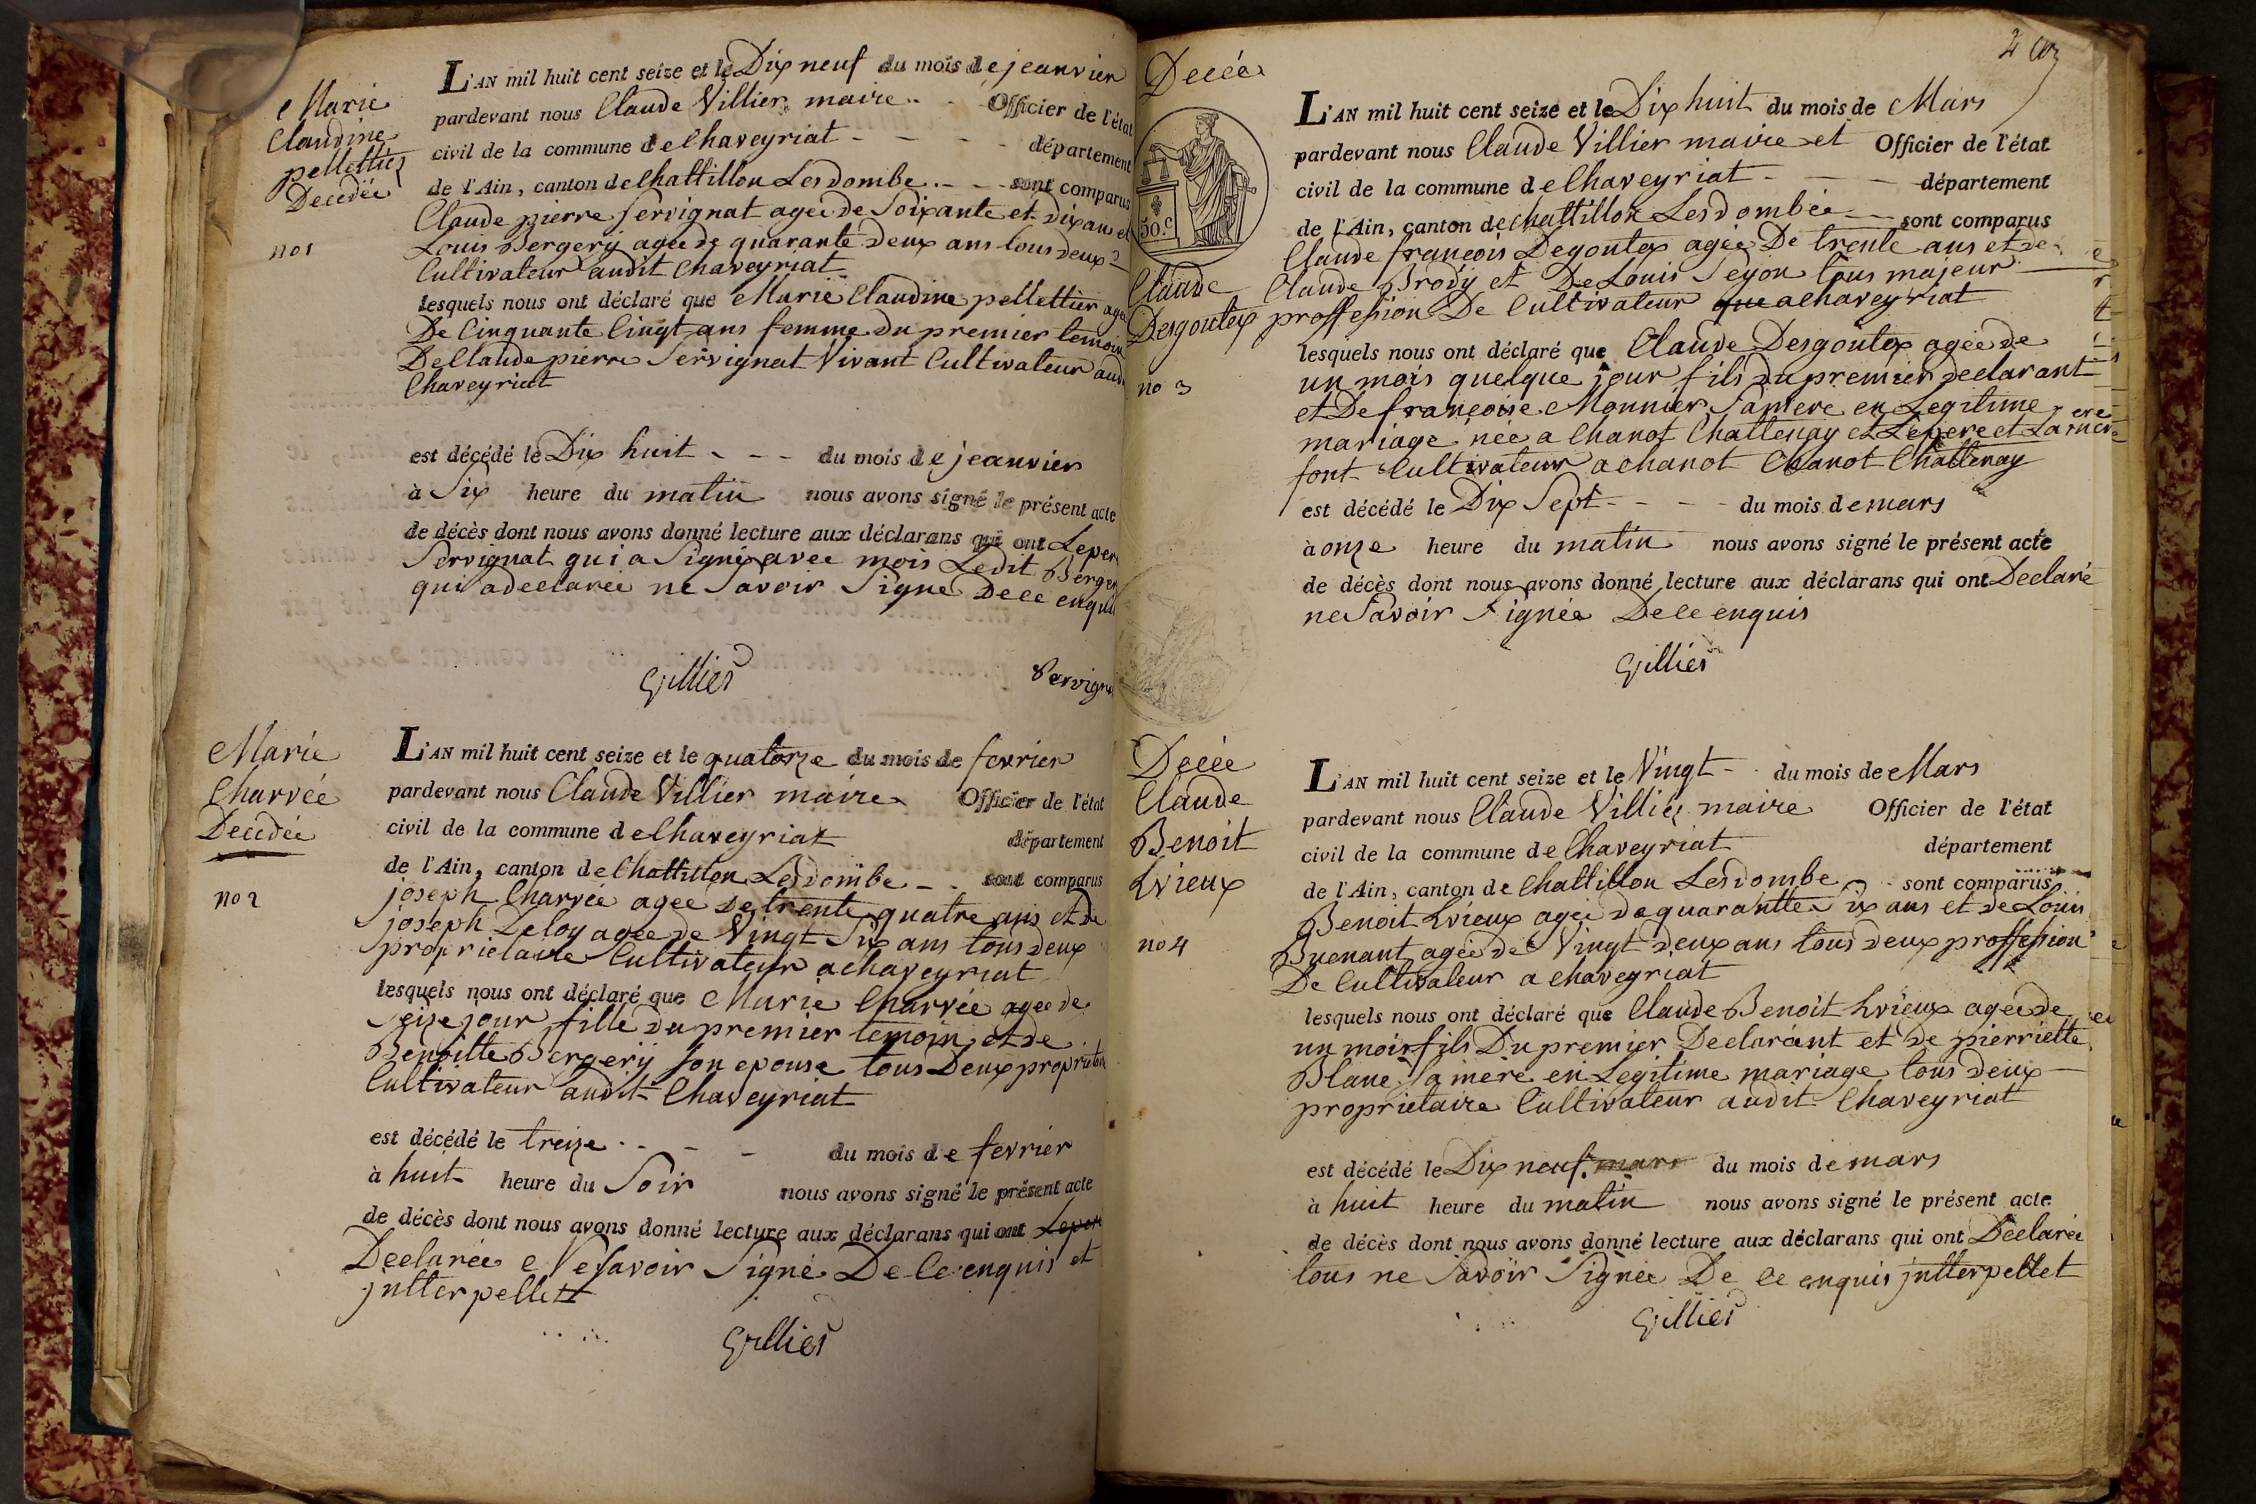 Marie
Claudine
pellettier
Decedée
no 1
L'AN mil huit cent seize et le Dix neuf du mois de jeanvier
pardevant nous Claude Villier maire Officier de l'état
civil de la commune de Chaveyriat département
de l'Ain, canton de Chattillon Les dombe sont comparus
Claude pierre Servignat agée de Soixante et dix ans et
Louis Bergery agée de quarante deux ans tous deux
Cultivateur audit Chaveyriat
lesquels nous ont déclaré que Marie Claudine pellettier agé
De Cinquante Cinqt ans femme du premier temoin
De Claude pierre Servignat Vivant Cultivateur aud
Chaveyriat
est décédé le Dix huit du mois de jeanvier
à Six heure du matin nous avons signé le présent acte
de décès dont nous avons donné lecture aux déclarans qui ont Leper
Servignat qui a Signé avec mois Ledit Berger
qui a declarée ne Savoir Signe De ce enquis
Villier Servign
Marie
Charvée
Decedée
no 2
L'AN mil huit cent seize et le quatorze du mois de fevrier
pardevant nous Claude Villier maire Officier de l'état
civil de la commune de Chaveyriat département
de l'Ain, canton de Chattillon Les dombe sont comparus
joseph Charvée agee de trente quatre ans et de
joseph Deloy agee de Vingt Six ans tous deux
proprietaire Cultivateur a chaveyriat
lesquels nous ont déclaré que Marie Charvée agee de
Seize jour fille du premier temoin et de
Benoitte Bergery Son epouse tous Deux proprietai
Cultivateur audit Chaveyriat
est décédé le treize du mois de fevrier
à huit heure du Soir nous avons signé le présent acte
de décès dont nous avons donné lecture aux déclarans qui ont Leper
Declarée Ne Savoir Signé De Ce enquis et
jntterpellett
Villier
2
Decée
50.C
Claude
Desgoutex
no 3
L'AN mil huit cent seize et le Dix huit du mois de Mars
pardevant nous Claude Villier maire et Officier de l'état
civil de la commune de Chaveyriat département
de l'Ain, canton de chattillon Les dombée sont comparus
Claude françois Degoutex agée De trente ans et de
Claude Brody et De Louis Seyon tous majeur
proffession De Cultivateur que a chaveyriat
lesquels nous ont déclaré que Claude Desgoutex agée de
un mois quelque jour fils du premier declarant
et De françoise Monnier Sa mere en Legitime
mariage née a Chanot Chattenay et Le pere et La mere
font Cultivateur a chanot Chanot Chattenay
est décédé le Dix Sept du mois de mars
à onze heure du matin nous avons signé le présent acte
de décès dont nous avons donné lecture aux déclarans qui ont Declaré
ne Savoir Signée De ce enquis
Villier
Decée
Claude
Benoit
Lvieux
no 4
L'AN mil huit cent seize et le Vingt du mois de Mars
pardevant nous Claude Villier maire Officier de l'état
civil de la commune de Chaveyriat département
de l'Ain, canton de Chattillon Les dombe sont comparus
Benoit Lvieux agée de quarantte Six ans et de Louis
Buenant agée de Vingt deux ans tous deux proffession
De Cultivateur a chaveyriat
lesquels nous ont déclaré que Claude Benoit Lvieux agée de
un mois fils Du premier Declarant et de pierriette
Blanc Sa mere en Legitime mariage tous deux
proprietaire Cultivateur audit Chaveyriat
est décédé le Dix neuf mars du mois de mars
à huit heure du matin nous avons signé le présent acte
de décès dont nous avons donné lecture aux déclarans qui ont Declarée
tous ne Savoir Signée De ce enquis jntterpellet
Villier